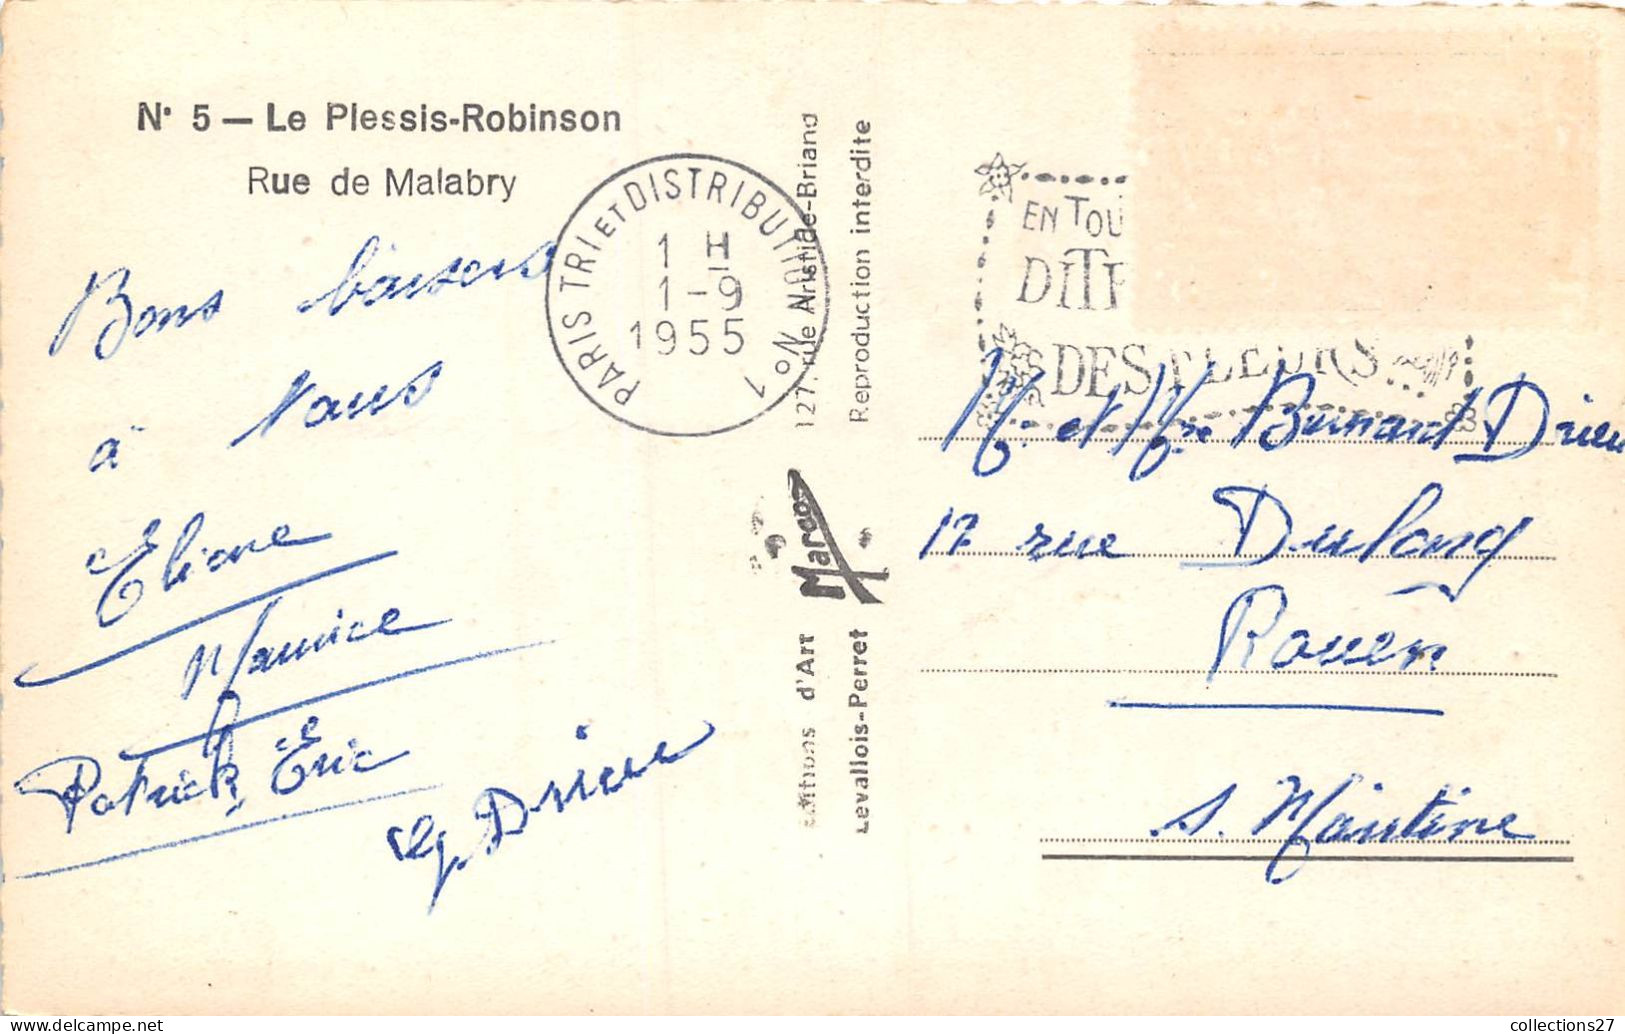 N° 5 — Le Plessis-Robinson
Rue de Malabry
Bons baisers
à tous
Eliane
Maurice
Patrick, Eric
Drieu
PARIS TRI ET DISTRIBUTION No 1
1 H
1-9
1955
127, rue Aristide-Briand
Reproduction interdite
Marco
Editions d'Art
Levallois-Perret
EN TOU
DIT
DES FLEURS
M. et Mme Bernard Drieu
17 rue Dulong
Rouen
S. Maritime
collections27